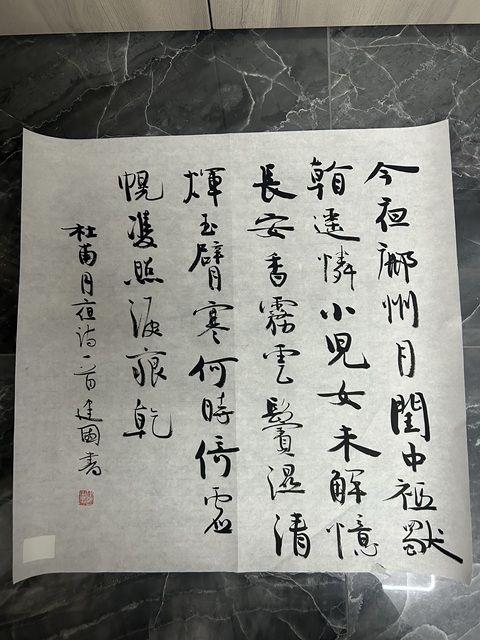 今夜鄜州月閨中祗獨
看遥憐小兒女未解憶
長安香霧雲鬟濕清
輝玉臂寒何時倚虛
幌雙照淚痕乾
杜甫月夜詩一首建國書